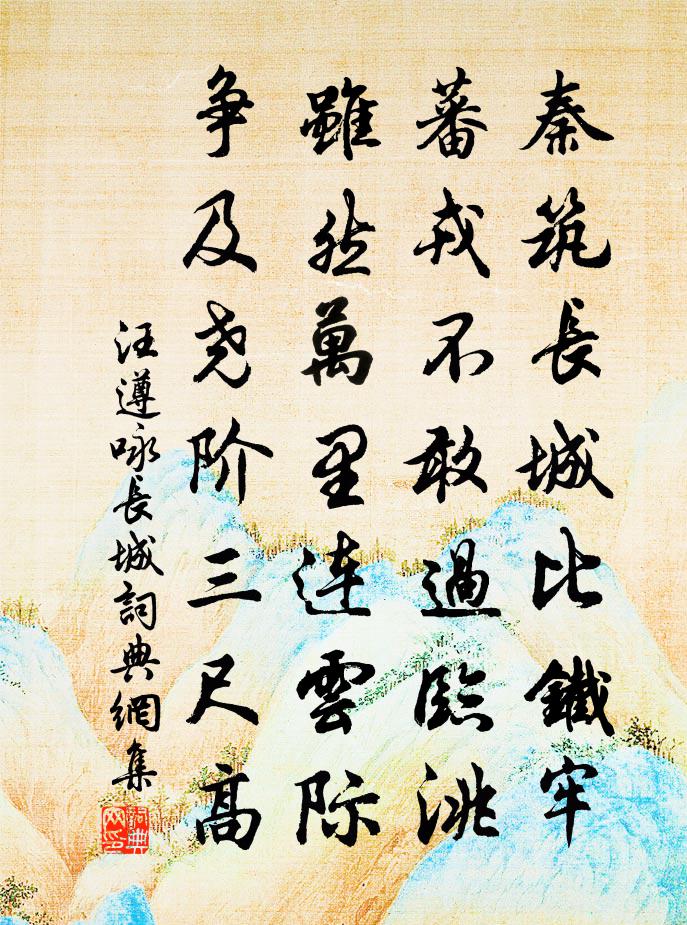 秦筑長城比鐵牢
蕃戎不敢過臨洮
雖然萬里連雲际
争及尧阶三尺高
汪遵咏長城詞典網集
詞典网印